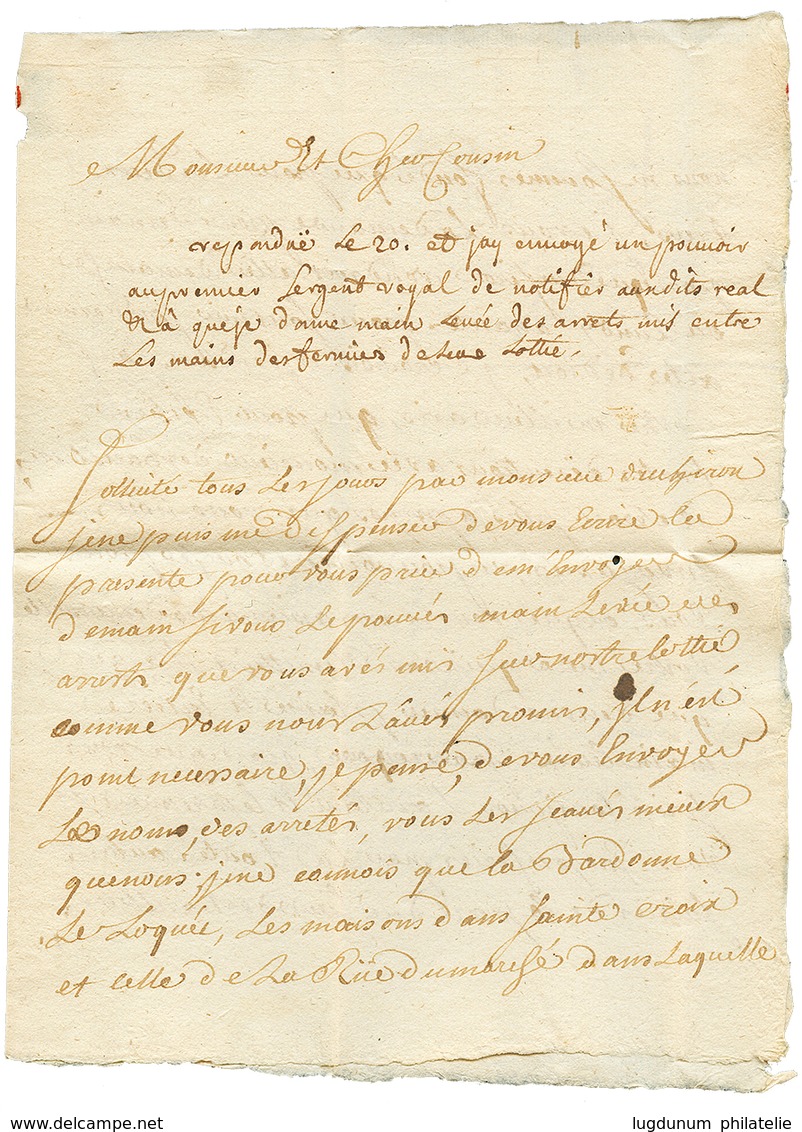 Monsieur Et Cher Cousin
repondüe Le 20. et jay envoyé un pouvoir
au premier Sergent royal de notifier auxdits real
& à que je donne main Levée des arrets mis entre
Les mains des fermiers de Lottie.
Sollicité tous Les jours par monsieur duchiron
je ne puis me dispenser de vous Ecrire La
presente pour vous prier de m'Envoyer
demain si vous Le pouvés main Levée des
arrets que vous avés mis sur nostre Lottie
comme vous nous L'avés promis, jl n'est
point necessaire, je pense, de vous Envoyer
Les noms des arretés, vous Les scavés mieux
que nous; je ne connois que la Bardonne
Le Loquée, Les maisons dans sainte croix
et celle de La Rüe du marché dans Laquelle
delcampe.net
lugdunum philatelie